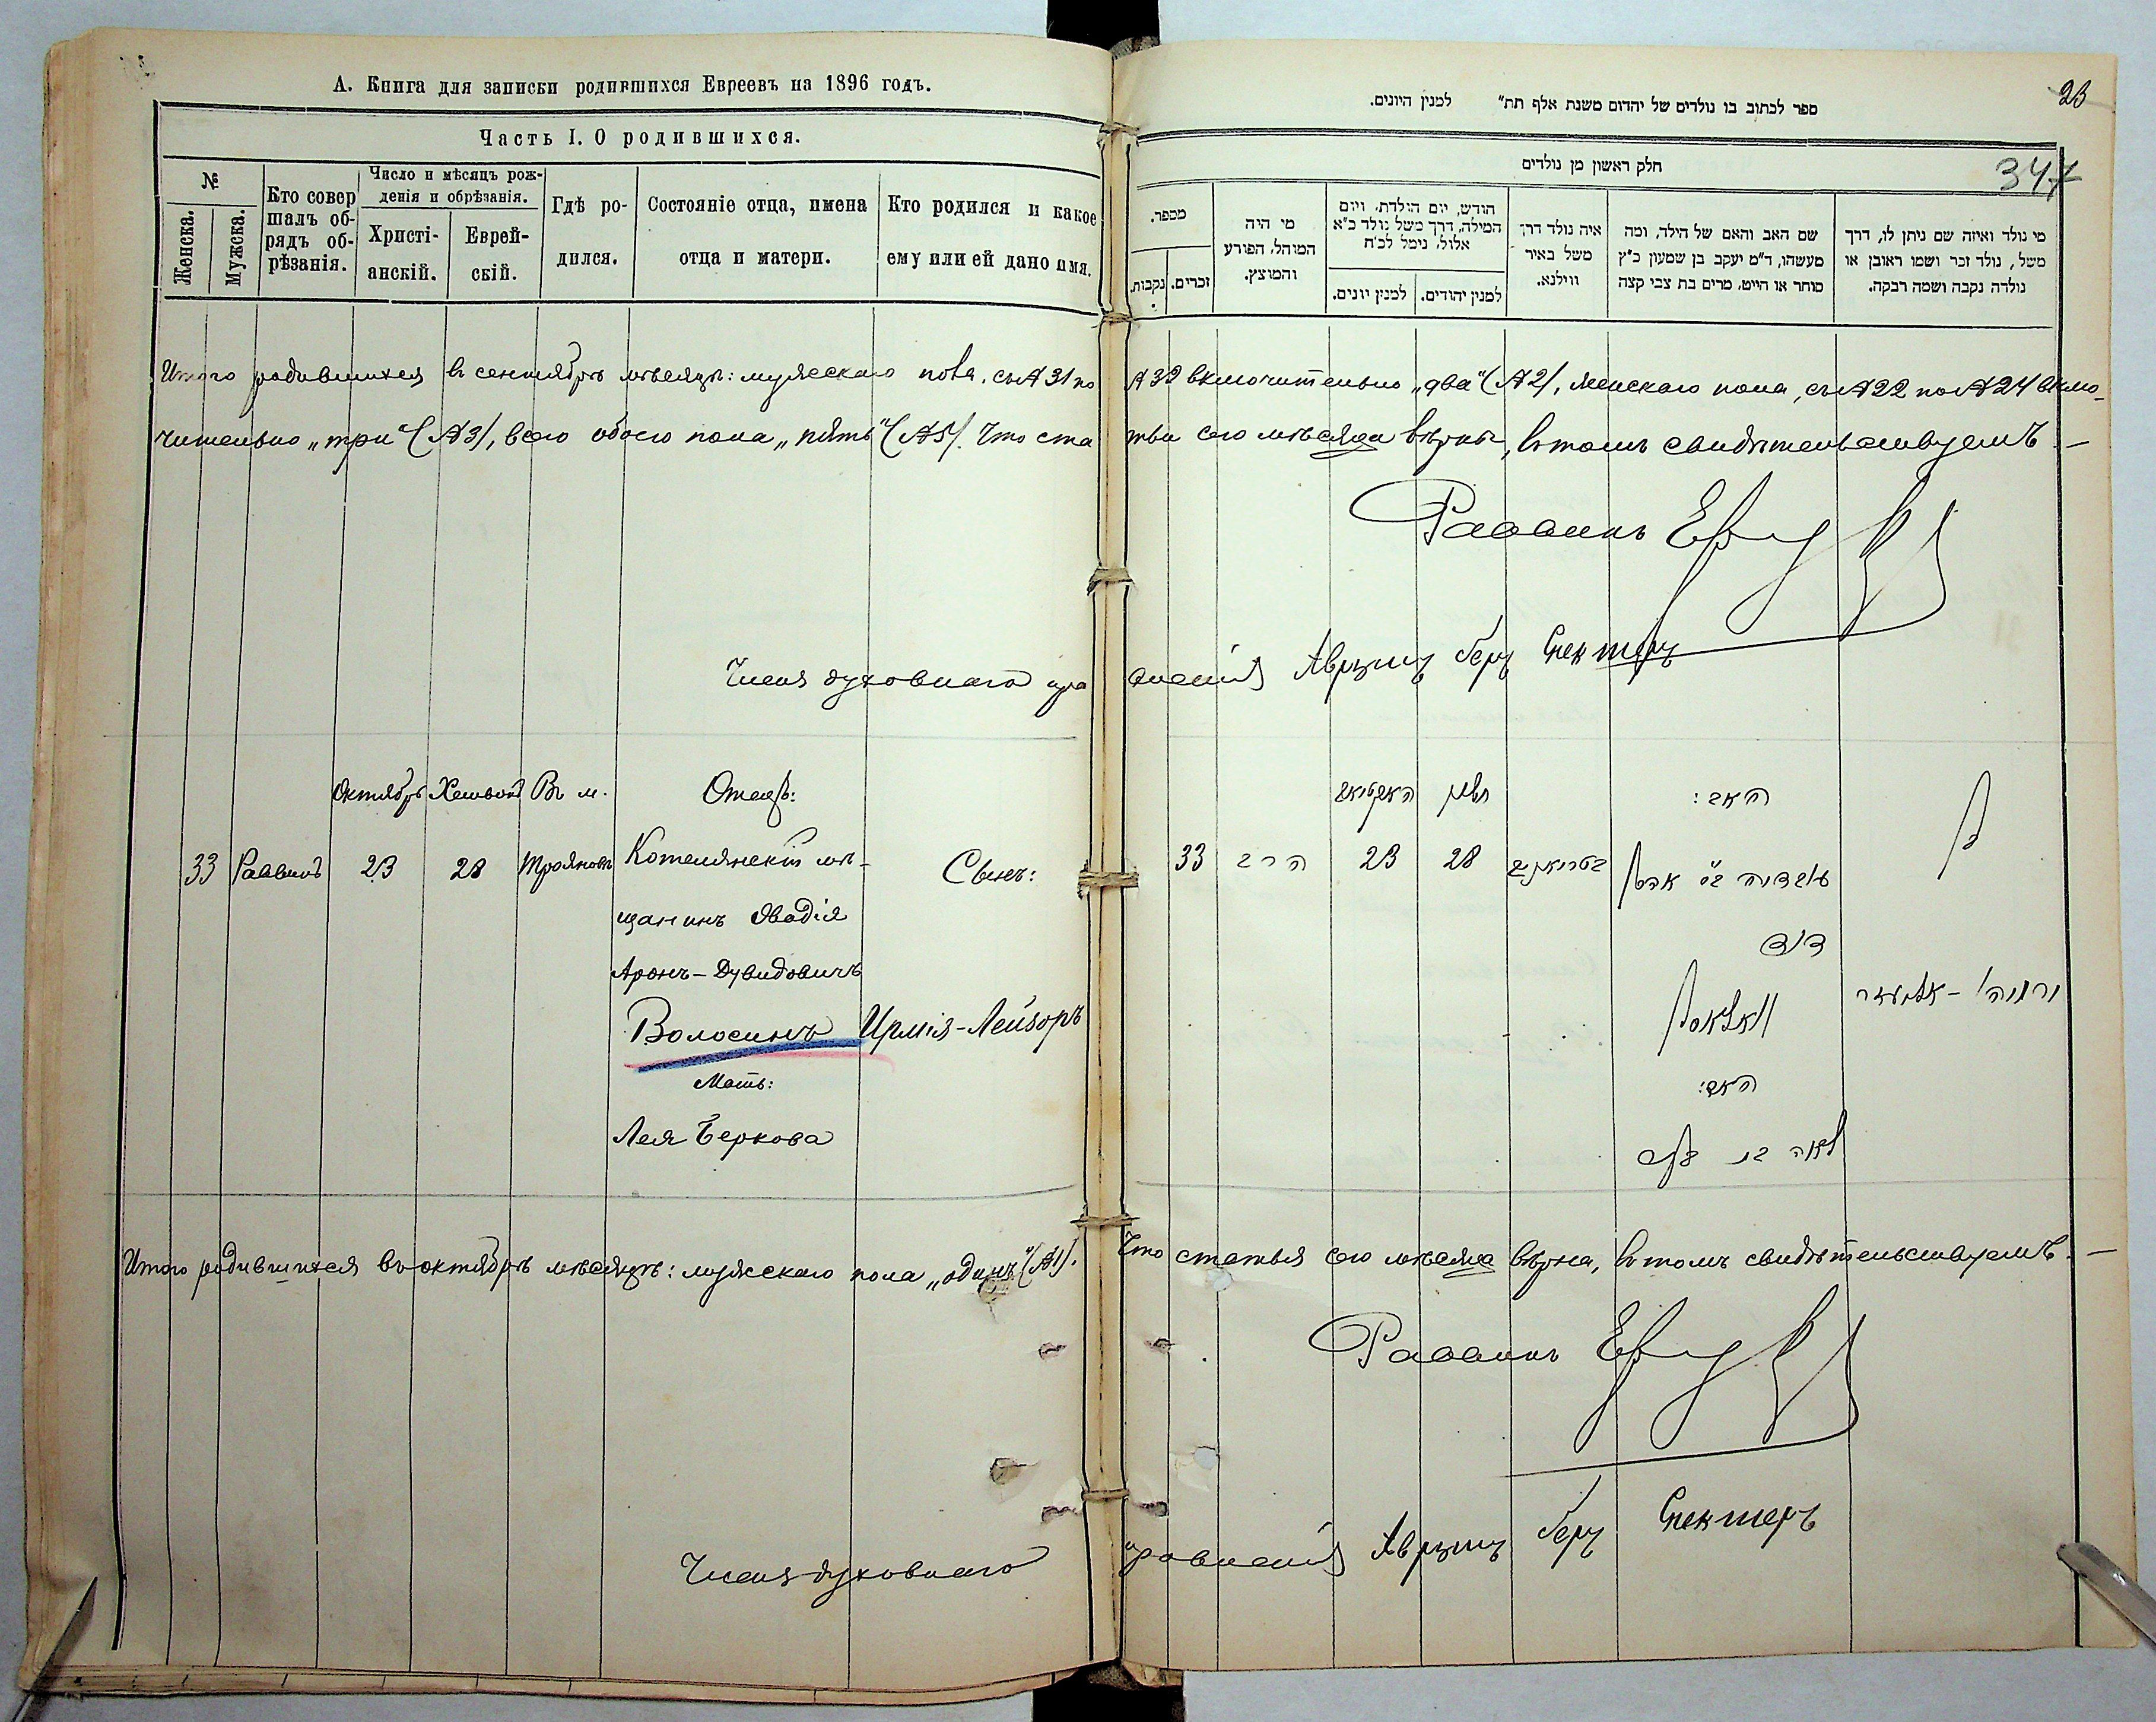 А. Книга для записки родившихся Евреевъ на 1896 годъ.
Часть I. О родившихся.
№
Женска.
Мужска.
Кто совер
шалъ об-
рядъ об-
рѣзанія.
Число и мѣсяцъ рож-
денія и обрѣзанія.
Христі-
анскій.
Еврей-
скій.
Гдѣ ро-
дился.
Состояніе отца, имена
отца и матери.
Кто родился и какое
ему или ей дано имя.
23
347
ספר לכתוב בו נולדים של יהדום משנת אלף תת״ למנין היונים.
חלק ראשון מן נולדים
מכפר.
נקבות.
זכרים.
מי היה
המוהל, הפורע
והמוצץ.
הודש, יום הולדת, ויום
המילה, דרך משל נולד כ״א
אלול, נימל לכ״ח
למנין יונים.
למנין יהודים.
איה נולד דרך
משל באיר
ווילנא.
שם האב והאם של הילד, ומה
מעשהו, ד״מ יעקב בן שמעון כ״ץ
סוחר או הייט, מרים בת צבי קצה
מי נולד ואיזה שם ניתן לו, דרך
משל, נולד זכר ושמו ראובן או
נולדה נקבה ושמה רבקה.
Итого родившихся въ сентябрѣ мѣсяцѣ: мужескаго пола, съ №31 по №32 включительно „два“ (№2), женскаго пола, съ №22 по №24 вклю-
чительно „три“ (№3), всего обоего пола „пять“ (№5). Что статьи сего мѣсяца вѣрны, въ томъ свидѣтельствуемъ. —
Раввинъ
Членъ духовнаго правленія Аврумъ Беръ Спекторъ
Октябрь Хешвонъ Въ м. Отецъ:
33 Раввинъ 23 28 Трояновѣ Котелянскій мѣ-
щанинъ Овадія Сынъ:
Аронъ-Дувидовичъ
Волосинъ Ирмія-Лейзоръ
Мать:
Лея Беркова
האב:
33 הרב 23 28 עובדיה ב״ר אהרן
דוד
ירמיה-אליעזר
האם:
לאה בת
Итого родившихся въ октябрѣ мѣсяцѣ: мужескаго пола „одинъ“ (№1). Что статья сего мѣсяца вѣрна, въ томъ свидѣтельствуемъ. —
Раввинъ
Членъ духовнаго правленія Аврумъ Беръ Спекторъ